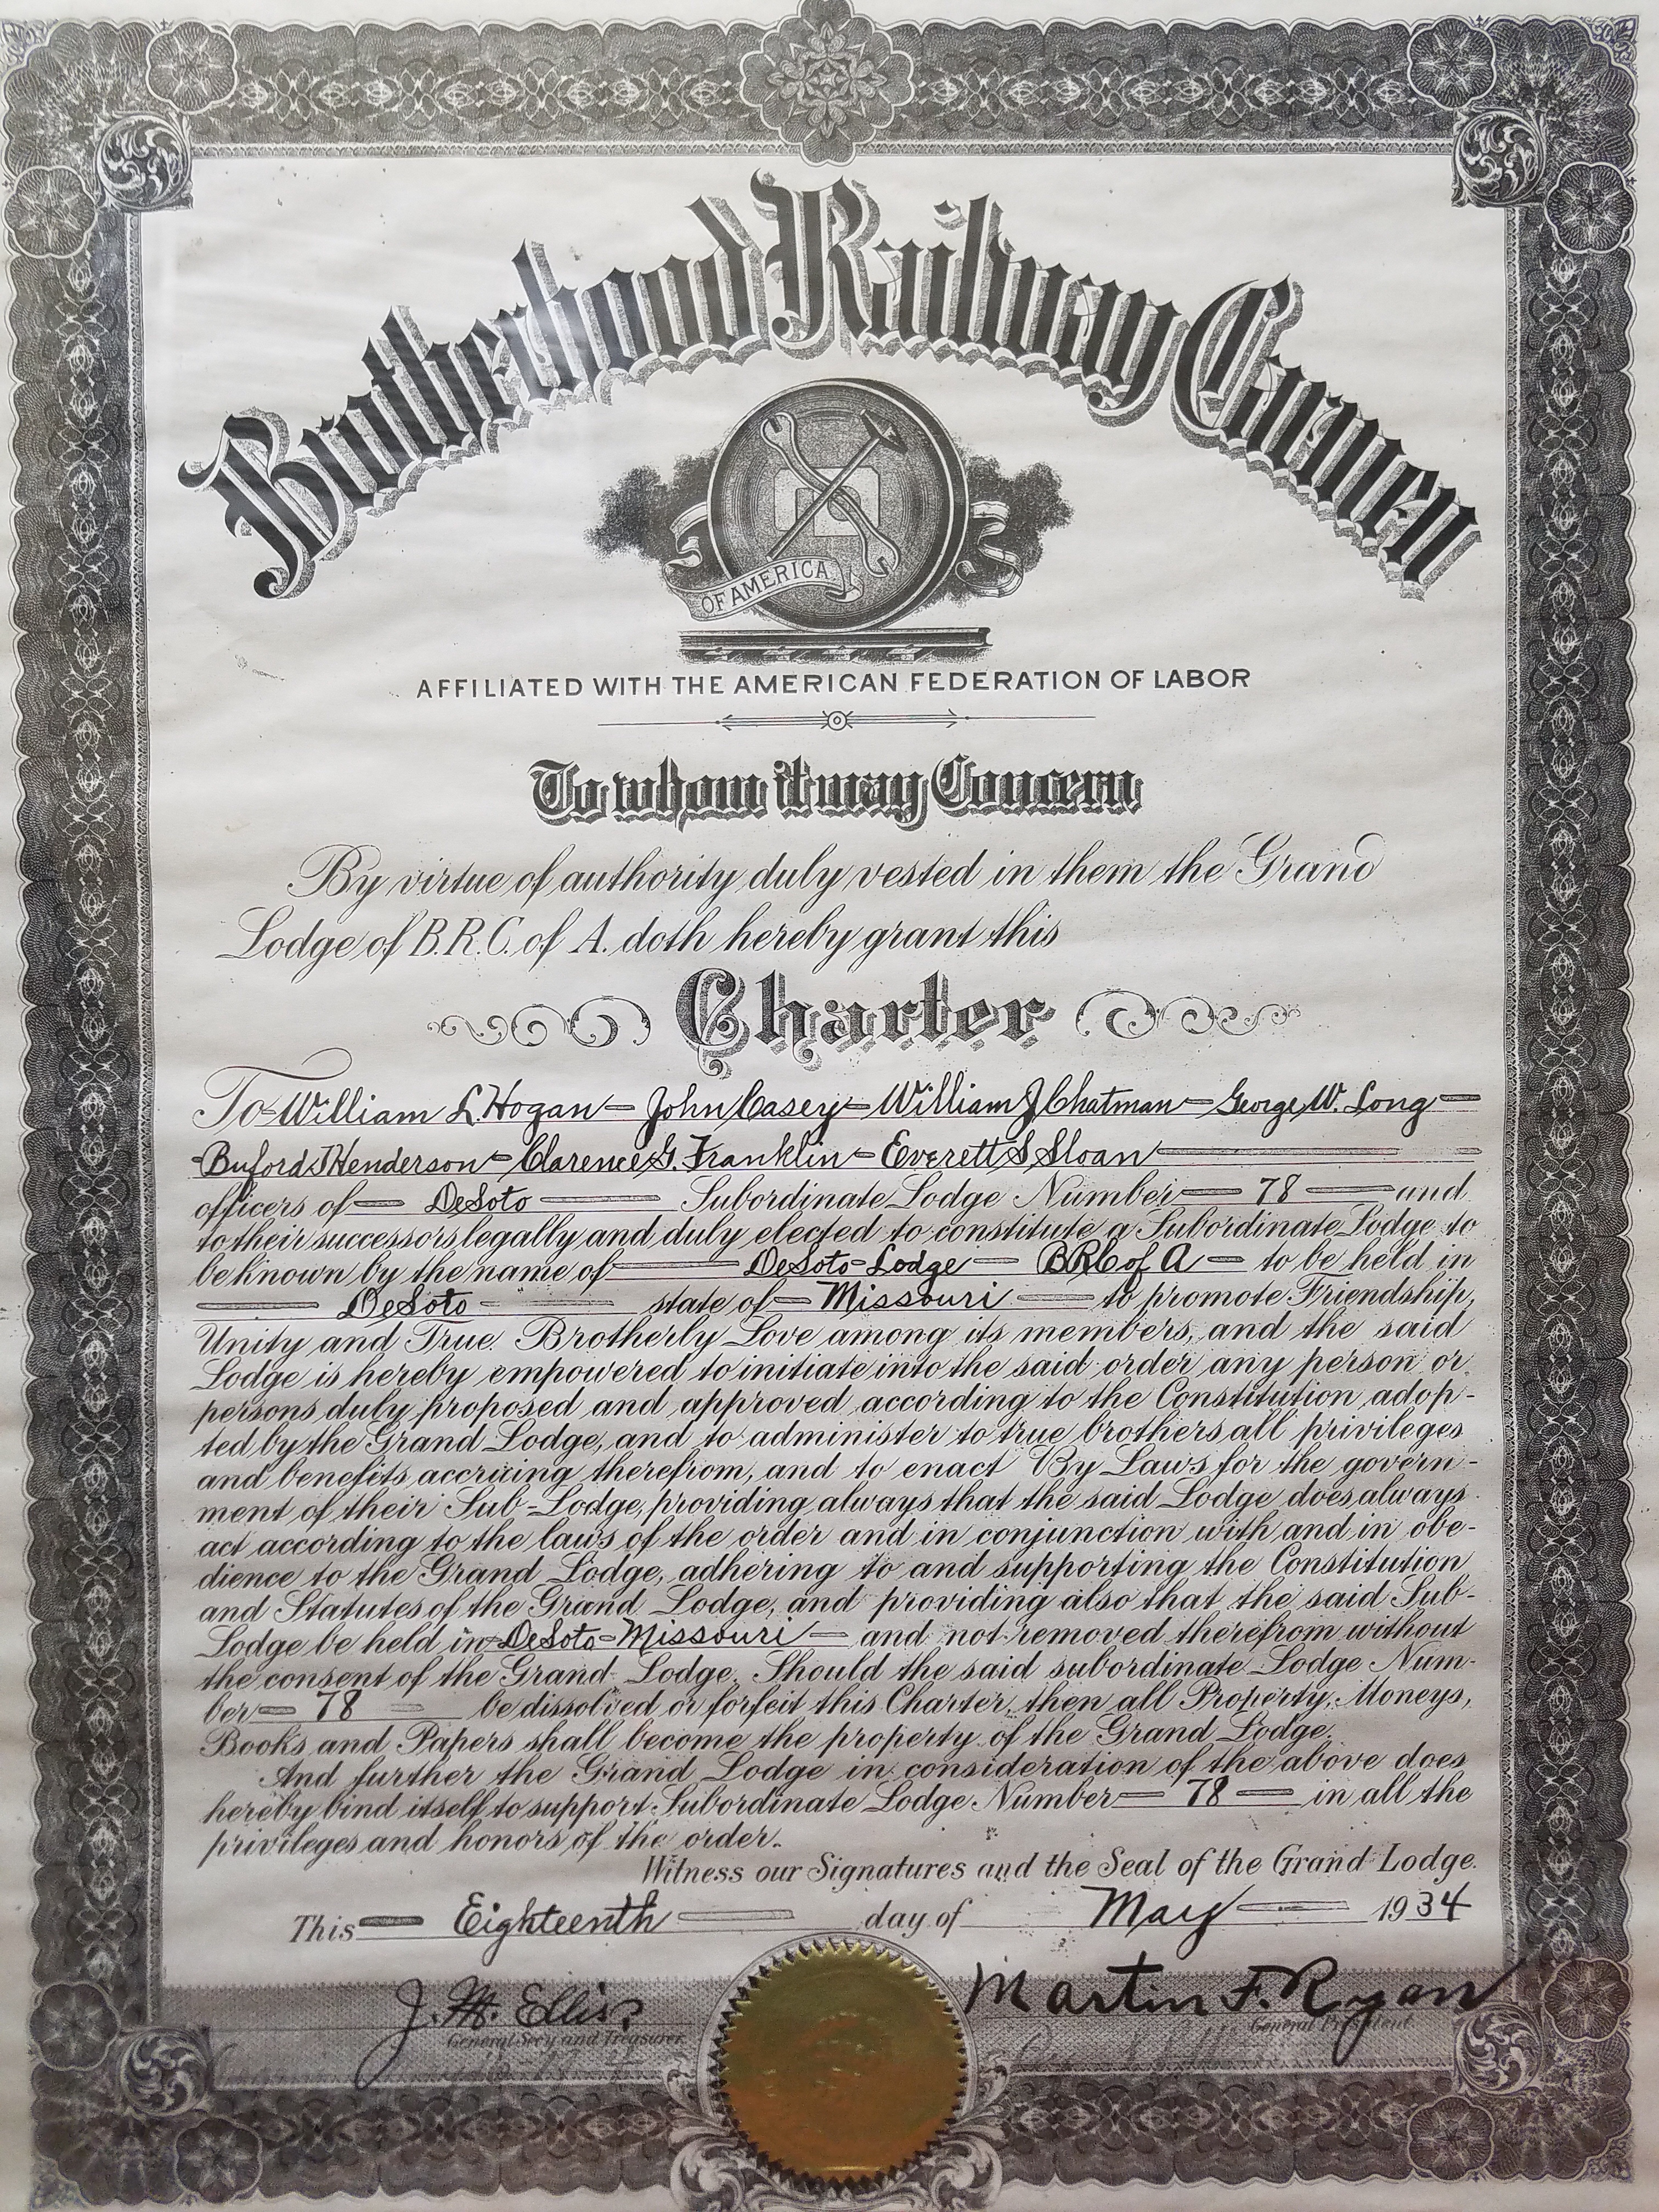 Brotherhood Railway Carmen
OF AMERICA
AFFILIATED WITH THE AMERICAN FEDERATION OF LABOR
To whom it may Concern
By virtue of authority duly vested in them the Grand
Lodge of B.R.C. of A. doth hereby grant this
Charter
To William L. Hogan - John Casey - William J Chatman - George W. Long
Buford J Henderson - Clarence G. Franklin - Everett S Sloan
officers of DeSoto Subordinate Lodge Number 78 and
to their successors legally and duly elected to constitute a Subordinate Lodge to
be known by the name of DeSoto-Lodge - BRC of A to be held in
DeSoto state of Missouri to promote Friendship,
Unity and True Brotherly Love among its members, and the said
Lodge is hereby empowered to initiate into the said order any person or
persons duly proposed and approved according to the Constitution adop-
ted by the Grand Lodge, and to administer to true brothers all privileges
and benefits accruing therefrom, and to enact By Laws for the govern-
ment of their Sub-Lodge, providing always that the said Lodge does always
act according to the laws of the order and in conjunction with and in obe-
dience to the Grand Lodge, adhering to and supporting the Constitution
and Statutes of the Grand Lodge, and providing also that the said Sub-
Lodge be held in DeSoto-Missouri and not removed therefrom without
the consent of the Grand Lodge. Should the said subordinate Lodge Num-
ber 78 be dissolved or forfeit this Charter, then all Property, Moneys,
Books and Papers shall become the property of the Grand Lodge.
And further the Grand Lodge in consideration of the above does
hereby bind itself to support Subordinate Lodge Number 78 in all the
privileges and honors of the order.
Witness our Signatures and the Seal of the Grand Lodge.
This Eighteenth day of May 1934
J. M. Ellis Martin F. Ryan
General Secy and Treasurer General President